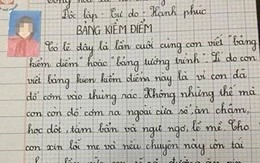 Độc lập - Tự do - Hạnh phúc
BẢNG KIỂM ĐIỂM
Có lẽ đây là lần cuối cùng con viết "bảng
kiểm điểm" hoặc "bảng tường trình". Lí do con
viết bảng kiểm điểm này là vì con đã
đổ cơm vào thùng rác. Không những thế mà
con còn đổ cơm ra ngoài cửa sổ, ăn chậm,
học dốt, tắm bẩn và ngủ ngố, lề mề. Cho
con xin lỗi mẹ và nếu chuyện này còn tái